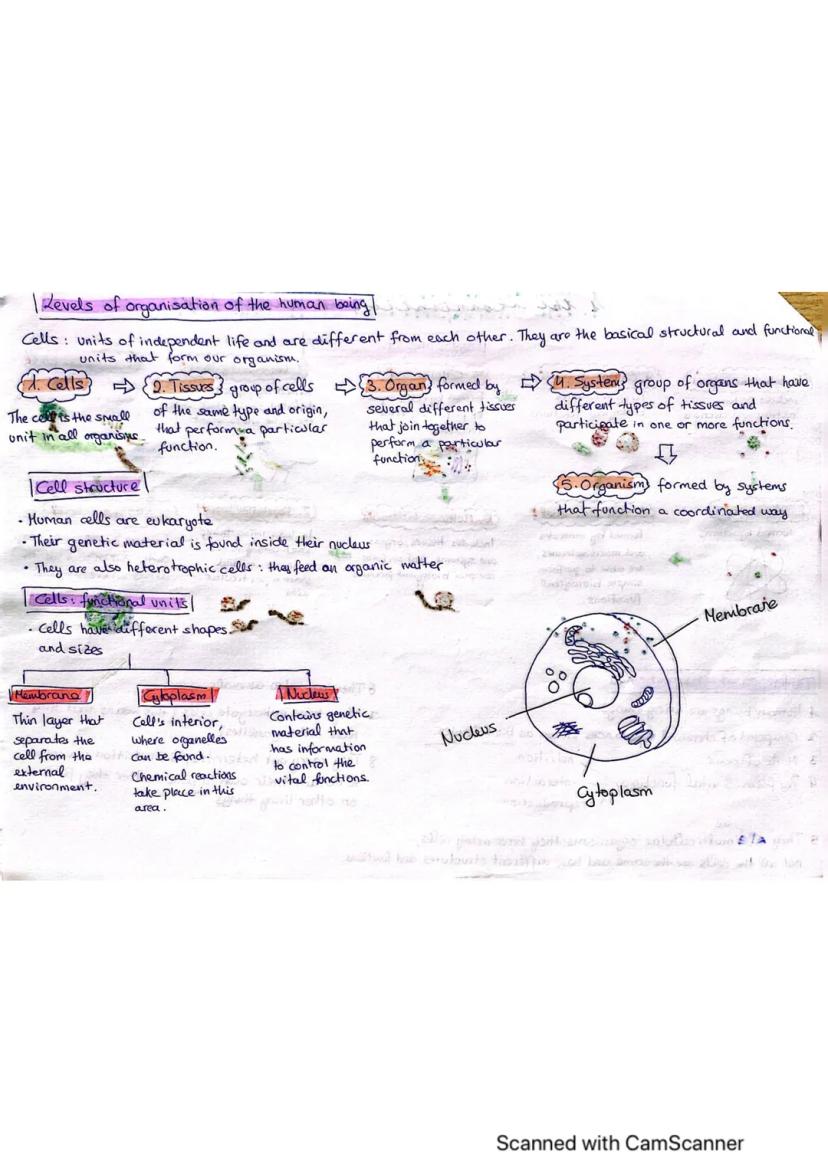 Levels of organisation of the human being
Cells : units of independent life and are different from each other. They are the basical structural and functional
units that form our organism.
1. Cells
The cell is the small
unit in all organisms.
2. Tissues group of cells
of the same type and origin,
that perform a particular
function.
3. Organ formed by
several different tissues
that join together to
perform a particular
function
4. System group of organs that have
different types of tissues and
participate in one or more functions.
5. Organism formed by systems
that function a coordinated way
Cell structure
• Human cells are eukaryote
• Their genetic material is found inside their nucleus
• They are also heterotrophic cells : they feed on organic matter
Cells: functional units
• Cells have different shapes
and sizes
Membrane
Thin layer that
separates the
cell from the
external
environment.
Cytoplasm
Cell's interior,
where organelles
can be found.
Chemical reactions
take place in this
area.
Nucleus
Contains genetic
material that
has information
to control the
vital fonctions.
Membrane
Nucleus
Cytoplasm
Scanned with CamScanner